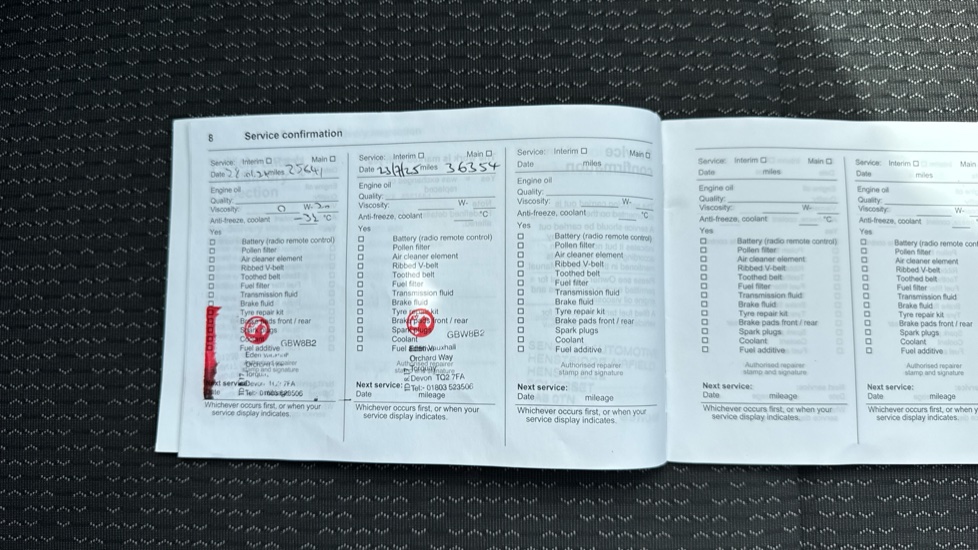 8 Service confirmation
Service: Interim Main
Date miles
Engine oil
Quality:
Viscosity: 0 W-
Anti-freeze, coolant -32 °C
Yes
Battery (radio remote control)
Pollen filter
Air cleaner element
Ribbed V-belt
Toothed belt
Fuel filter
Transmission fluid
Brake fluid
Tyre repair kit
pads front / rear
GBW8B2
Fuel additive
Eden
Torquay,
Devon
Tel:- 01803
Whichever occurs first, or when your
service display indicates.
Service: Interim Main
Date 23/7/25 miles 36354
Engine oil
Quality:
Viscosity: W-
Anti-freeze, coolant °C
Yes
Battery (radio remote control)
Pollen filter
Air cleaner element
Ribbed V-belt
Toothed belt
Fuel filter
Transmission fluid
Brake fluid
Tyre kit
front / rear
GBW8B2
Coolant
Fuel Eden Vauxhall
Orchard Way
Torquay
Devon TQ2 7FA
Next service: Tel:- 01803 523506
Date mileage
Whichever occurs first, or when your
service display indicates.
Service: Interim Main
Date miles
Engine oil
Quality:
Viscosity: W-
Anti-freeze, coolant °C
Yes
Battery (radio remote control)
Pollen filter
Air cleaner element
Ribbed V-belt
Toothed belt
Fuel filter
Transmission fluid
Brake fluid
Tyre repair kit
Brake pads front / rear
Spark plugs
Coolant
Fuel additive
Authorised repairer
stamp and signature
Next service:
Date mileage
Whichever occurs first, or when your
service display indicates.
Service: Interim Main
Date miles
Engine oil
Quality:
Viscosity: W-
Anti-freeze, coolant °C
Yes
Battery (radio remote control)
Pollen filter
Air cleaner element
Ribbed V-belt
Toothed belt
Fuel filter
Transmission fluid
Brake fluid
Tyre repair kit
Brake pads front / rear
Spark plugs
Coolant
Fuel additive
Authorised repairer
stamp and signature
Next service:
Date mileage
Whichever occurs first, or when your
service display indicates.
Service: Interim Main
Date miles
Engine oil
Quality:
Viscosity: W-
Anti-freeze, coolant
Yes
Battery (radio remote
Pollen filter
Air cleaner element
Ribbed V-belt
Toothed belt
Fuel filter
Transmission fluid
Brake fluid
Tyre repair kit
Brake pads front / rear
Spark plugs
Coolant
Fuel additive
Authorised repairer
stamp and signature
Next service:
Date mileage
Whichever occurs first, or when
service display indicates.